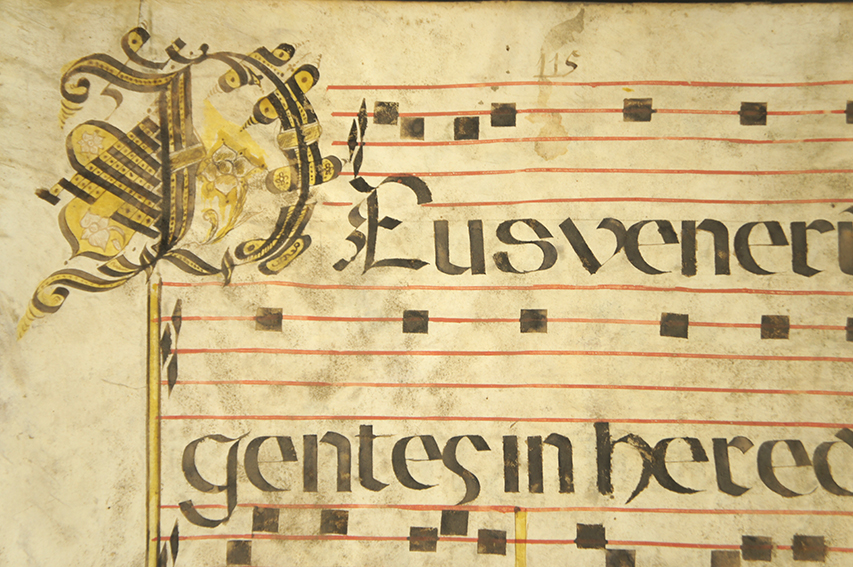 DEusveneri
gentes in hered